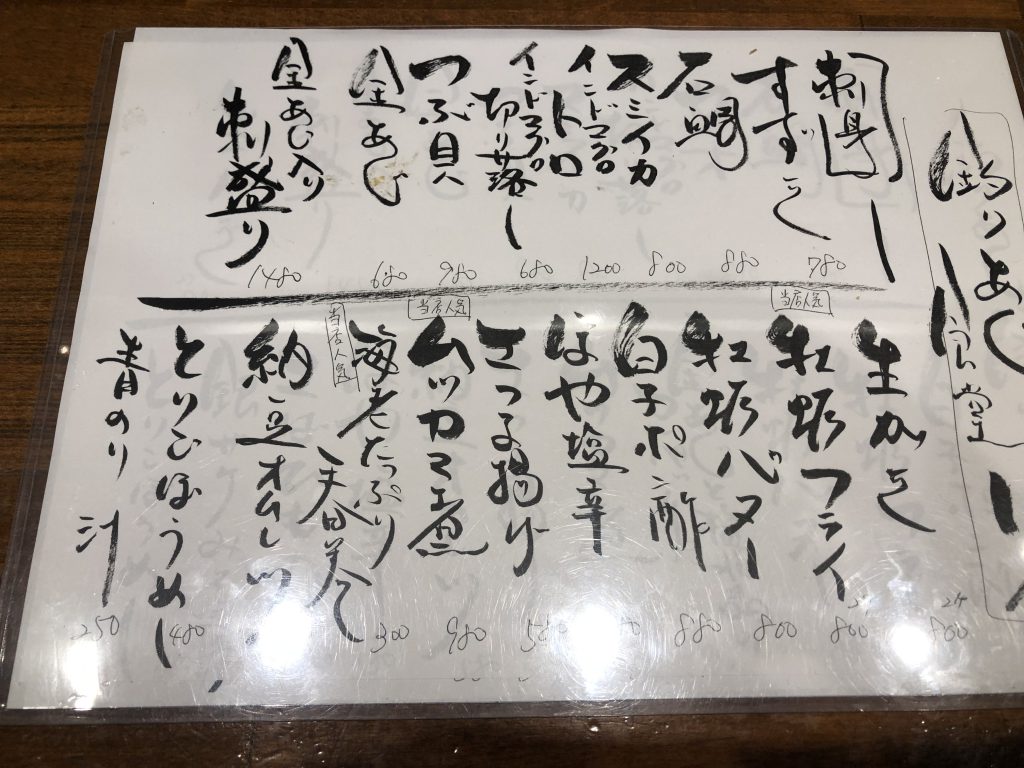 刺身
すずき
880
石鯛
800
スミイカ
インドマグロ
トロ
1200
インドマグロ
切り落し
680
つぶ貝
980
金あじ
680
金あじ入り
刺盛り
1480
780
生かき
2ケ
800
当店人気
牡蛎フライ
800
牡蛎バター
800
白子ポン酢
880
ほや塩辛
さつま揚げ
ムツカマ煮
当店人気
980
海老たっぷり
春巻
当店人気
300
納豆オムレツ
とりごぼうめし
480
青のり
汁
250